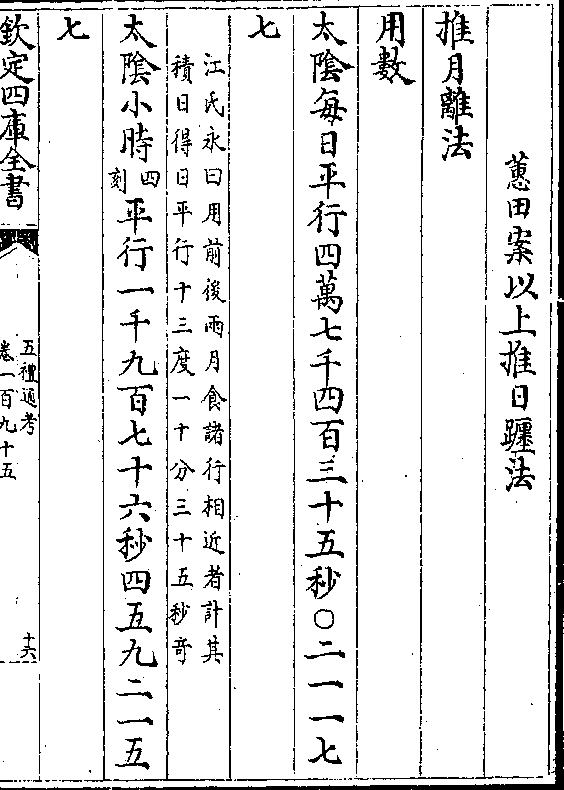 蕙田案以上推日躔法
推月離法
用數
太陰每日平行四萬七千四百三十五秒〇二一一七
七
江氏永曰用前後兩月食諸行相近者計其
積日得日平行十三度一十分三十五秒奇
太陰小時四刻平行一千九百七十六秒四五九二一五
七
欽定四庫全書
五禮通考
卷一百九十五
十六